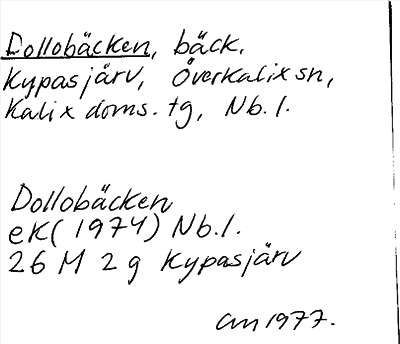 Dollobäcken, bäck,
Kypasjärv, Överkalix sn,
Kalix doms. tg, Nb. l.
Dollobäcken
eK(1974) Nb. l.
26 M 2 g Kypasjärv
1977.